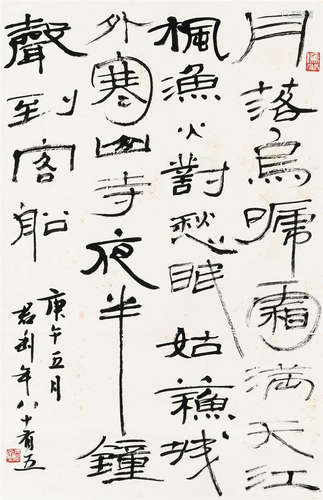 月落烏啼霜滿天江
楓漁火對愁眠姑蘇城
外寒山寺夜半鐘
聲到客船
庚午五月
君利年八十有五